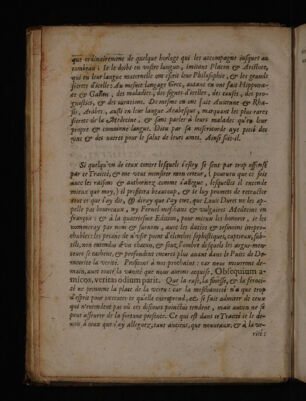 que ordinairement de quelque horloge qui les accompagne iusques au
tombeau: Ie le doibs en nostre langue, imitans Platon & Aristote,
qui en leur langue maternelle ont escrit leur Philosophie, & les grands
secrets d'icelle. Au mesme langage Grec, autant en ont fait Hippocra-
te & Galien, des maladies, des signes d'icelles, des causes, des pro-
gnostics, & des curations. De mesme en ont fait Auicenne & Rha-
sis, Arabes, aussi en leur langue Arabesque, marquant les plus rares
secrets de la Medecine, & sans parler à leurs malades qu'en leur
propre & commune langue. Dieu par sa misericorde aye pitié des
uns & des autres pour le salut de leurs ames. Ainsi soit-il.
Si quelqu'un de ceux contre lesquels i'escry se sent par trop offensé
par ce Traicté, & me veut monstrer mon erreur, (pourueu que ce soit
auec les raisons & authoritez comme i'allegue, lesquelles il entende
mieux que moy,) il profitera beaucoup, & ie luy promets de retracter
tout ce que i'ay dit, & diray que i'ay tort, que Louis Duret ne les ap-
pelle pas bourreaux, ny Fernel insensez & vulgaires Medecins en
françois: & à la quatriesme Edition, pour mieux les honorer, ie les
nommeray par nom & surnom, auec les dattes & tesmoins irrepro-
chables: les priant de n'user point d'elenches sophistiques, captieux, subtils,
non entendus d'un chacun, & sous l'ombre desquels les argumen-
teurs se cachent, & profondent encore plus auant dans le Puits de De-
mocrite la verité. Pensons à nos prochains: car nous mourrons de-
main, auec toute la vanité que nous aurons acquise. Obsequium a-
micos, veritas odium parit. Que la ruse, la finesse, & la feroci-
té ne prennent la place de la vertu: car la meschanceté n'a que trop
d'esprit pour executer ce qu'elle entreprend, et se fait admirer de ceux
qui n'entendent pas où ces discours pointus tendent, mais aucun ne se
peut asseurer de la fortune presente. Ce qui est dans ce Traicté ie le
doibs à ceux que i'ay alleguez, tant anciens, que nouueaux: & à la ve-
rité: